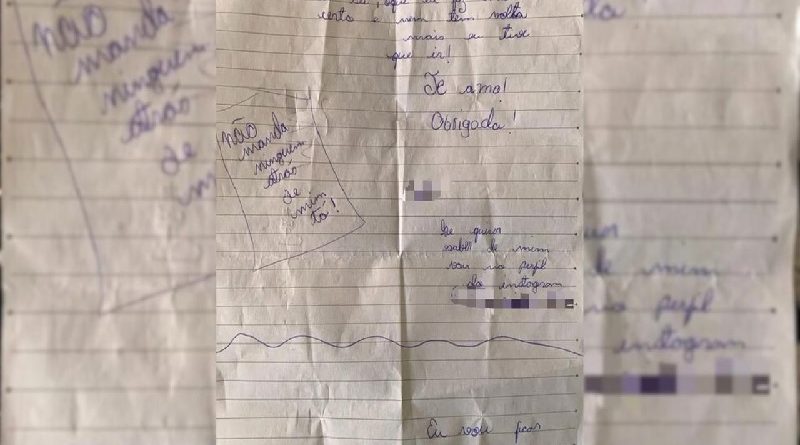 certo e nem tem volta
mais eu tive
que ir!
Te amo!
Obrigada!
não
manda
ninguém
atrás
de
mim
tá!
Se quer
saber de mem
vou no perfil
da instogram
Eu vou ficar